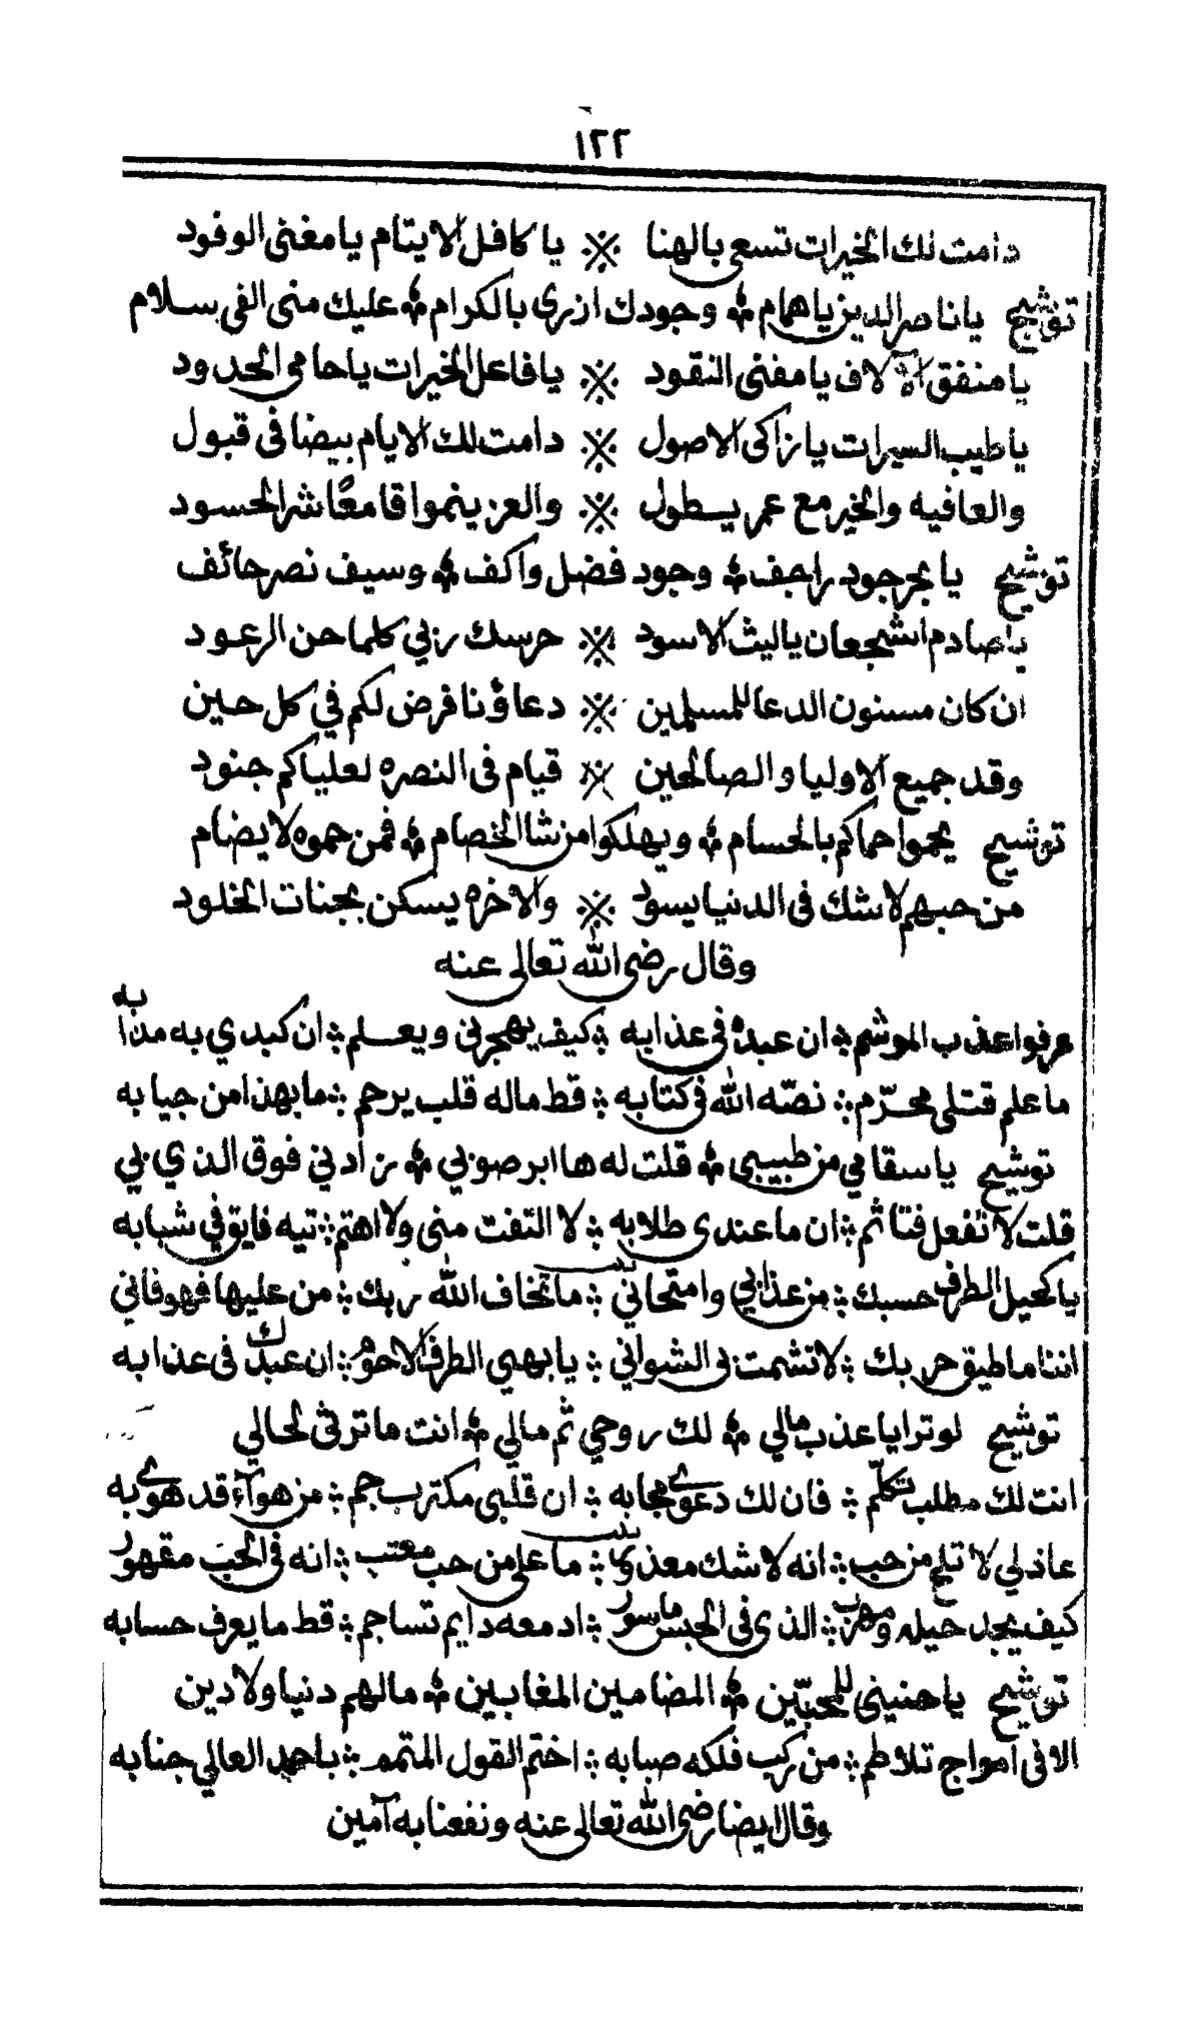 ١٢٢
دامت لك الخيرات تسعى بالهنا ※ يا كافل الايتام يا مغنى الوفود
توشيح يا ناصر الدين يا همام ؞ وجودك ازرى بالكرام ؞ عليك منى الفى سلام
يا منفق الآلاف يا مفنى النقود ※ يا فاعل الخيرات يا حامى الحدود
يا طيب السيرات يا زاكى الاصول ※ دامت لك الايام بيضا فى قبول
والعافيه والخير مع عمر يسطول ※ والعز ينموا قامعًا شر الحسود
توشيح يا بحر جود راجف ؞ وجود فضل واكف ؞ وسيف نصر حائف
يا صادم الشجعان يا ليث الاسود ※ حرسك ربي كلما حن الرعود
ان كان مسنون الدعا للمسلمين ※ دعاؤنا فرض لكم في كل حين
وقد جميع الاوليا والصالحين ※ قيام فى النصره لعلياكم جنود
توشيح يحموا حماكم بالحسام ؞ ويهلكوا من شا الخصام ؞ فمن حموه لا يضام
من حبهم لا شك فى الدنيا يسود ※ والاخره يسكن بجنات الخلود
وقال رضى الله تعالى عنه
عرفوا عذب الموشم ؞ ان عبده فى عذابه ؞ كيف يهجرنى ويعلم ؞ ان كبدي به مذابه
ما علم قتلى محرّم ؞ نصّه الله فى كتابه ؞ قط ماله قلب يرحم ؞ ما بهذا من جيابه
توشيح يا سقامي من طبيبى ؞ قلت له ها ابرصوبي ؞ زادني فوق الذي بي
قلت لا تفعل فتاثم ؞ ان ما عندى طلابه ؞ لا التفت منى ولا اهتم ؞ تيه فايق في شبابه
يا كحيل الطرف حسبك ؞ من عذابي وامتحاني ؞ ما تخاف الله ربك ؞ من عليها فهو فاني
اننا ما طيق حربك ؞ لا تشمت بى الشواني ؞ يا بهي الطرف الاحوم ؞ ان عبدك فى عذابه
توشيح لو ترا يا عذب مالي ؞ لك روحي ثم مالي ؞ انت ما ترثى لحالي
انت لك مطلب تكلّم ؞ فان لك دعوى مجابه ؞ ان قلبى مكترب جم ؞ من هوآء قد هوى به
عاذلي لا تلح من حب ؞ انه لا شك معذور ؞ ما على من حب معتب ؞ انه فى الحب مقهور
كيف يجد حيله ومهرب ؞ الذى فى الحبس ماسور ؞ ادمعه دايم تساجم ؞ قط ما يعرف حسابه
توشيح يا حنينى للمحبّين ؞ المضامين المغابين ؞ مالهم دنيا ولا دين
الا فى امواج تلاطم ؞ من ركب فلكه صبابه ؞ اختم القول المتمم ؞ باحمد العالي جنابه
وقال ايضا رضى الله تعالى عنه ونفعنا به آمين